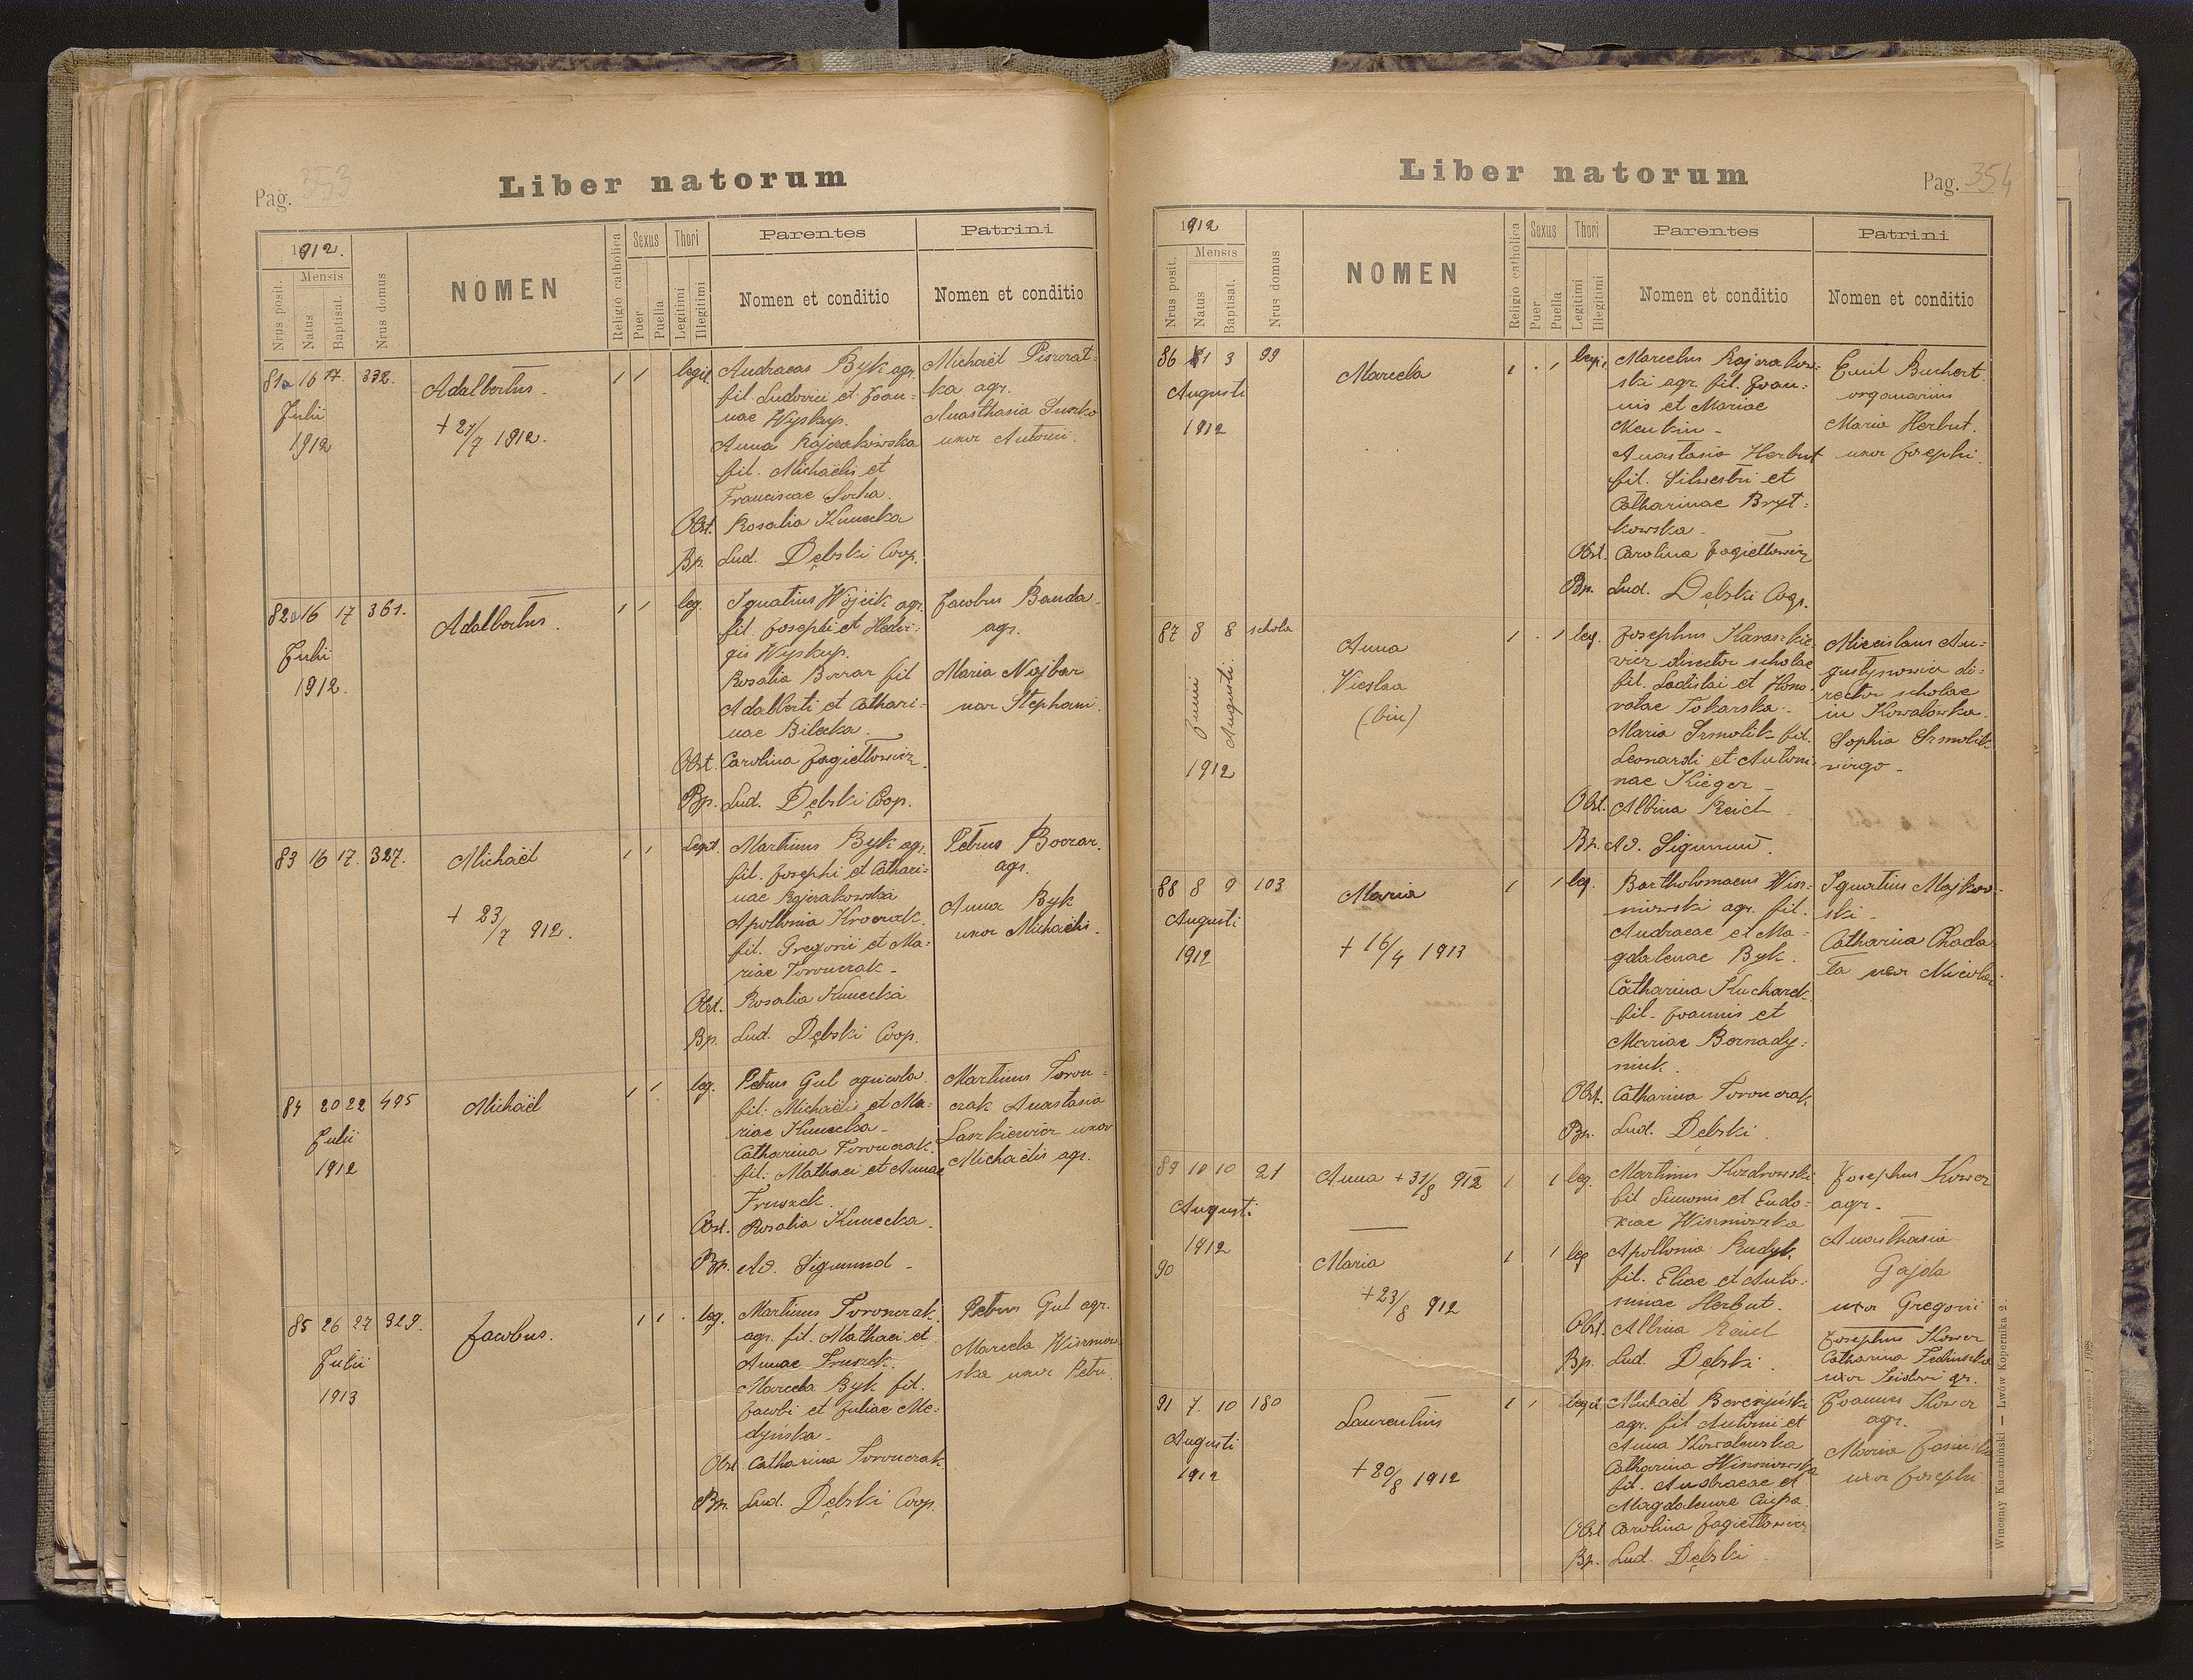 Pag. 353
Liber natorum
1912.
Mensis
Nrus posit.
Natus
Baptisat.
Nrus domus
NOMEN
Religio catholica
Sexus
Puer
Puella
Thori
Legitimi
Illegitimi
Parentes
Nomen et conditio
Patrini
Nomen et conditio
81a 16 17. 332.
Julii
1912
Adalbertus.
+ 27/7 1912.
1 1 legit.
Andraeas Byk agr.
fil. Ludovici et Joan=
nae Wyskup.
Anna Kajzrakowska
fil. Michaëlis et
Franciscae Socha.
Obst. Rosalia Kunecka
Bp. Lud. Dębski Coop.
Michaël
ka agr.
Anasthasia
uxor Antonii.
82a 16 17 361.
Julii
1912.
Adalbertus.
1 1 leg.
Ignatius Wójcik agr.
fil. Josephi et Hedvi=
gis Wyskup.
Rosalia fil
Adalberti et Cathari=
nae Bilecka.
Obst. Carolina Jagiełłowicz.
Bp. Lud. Dębski Coop.
Jacobus Banda
agr.
Maria Najbar
uxor Stephani.
83 16 17. 327.
Michaël
+ 23/7 912.
1 1 Legit.
Martinus Byk agr.
fil. Josephi et Cathari=
nae Kajzrakowska
Apollonia
fil. Gregorii et Ma=
riae Toronczak -
Obst. Rosalia Kunecka
Bp. Lud. Dębski Coop.
Petrus
agr.
Anna Byk
uxor Michaëlis -
84 20 22 495
Julii
1912
Michaël
1 1 leg.
Petrus Gul agricola
fil: Michaëlis et Ma=
riae Kunecka -
Catharina Toronczak
fil: Mathaei et Annae
Fruszek.
Obst. Rosalia Kunecka.
Bp. Ad. Sigmund -
Martinus Toron=
czak Anastasia
Laszkiewicz uxor
Michaëlis agr.
85 26 27 329.
Julii
1913
Jacobus.
1 1 . leg.
Martinus Toronczak
agr. fil. Mathaei et
Annae Fruszek.
Marcela Byk fil.
Jacobi et Juliae Me=
dyńska -
Obst Catharina Toronczak
Bp. Lud. Dębski Coop.
Petrus Gul agr.
Marcela Wiśniow
ska uxor Petri.
Liber natorum
Pag. 354
1912
Mensis
Nrus posit.
Natus
Baptisat.
Nrus domus
NOMEN
Religio catholica
Sexus
Puer
Puella
Thori
Legitimi
Illegitimi
Parentes
Nomen et conditio
Patrini
Nomen et conditio
86 1 3 99
Augusti
1912
Marcela
1 . 1 legit.
Marcelus Kajzrakow=
ski agr. fil. Joan=
nis et Mariae
-
Anastasia Herbut
fil. Silvestri et
Catharinae Bryt=
kowska -
Obst. Carolina Jagiełłowicz
Bp. Lud. Dębski Coop.
Emil Buchert
organarius
Maria Herbut.
uxor Josephi.
87 8 8 schola
Junii
Augusti.
1912
Anna
(bin)
1 . 1 leg.
Josephus Karaszkie
vicz director scholae
fil. Ladislai et Hono
ratae Tokarska -
Maria Szmolik fil.
Leonardi et Antoni
nae Kieger -
Obst. Albina Reich
Bp. Ad. Sigmund.
Miecislaus Au=
gustynowicz di=
rector scholae
in Kowalówka
Sophia Szmolik
virgo -
88 8 9 103
Augusti
1912
Maria
+ 16/4 1913
1 1 leg.
Bartholomaeus Wiś=
niowski agr. fil.
Andraeae et Ma=
gdalenae Byk.
Catharina Kucharek
fil. Joannis et
Mariae Bernady=
niuk.
Obst. Catharina Toronczak
Bp. Lud. Dębski.
Ignatius Majkow=
ski -
Catharina Chada
ła uxor Nicolai
89 10 10 21
Augusti
1912
Anna + 31/8 912
1 1 leg.
Martinus Kozdrowski
fil Simonis et Eudo=
xiae Wiśniowska
90
Maria
+ 23/8 912
1 1 leg
Apollonia Rudyk
fil. Eliae et Anto=
ninae Herbut.
Obst. Albina Reich
Bp. Lud. Dębski.
Josephus Kower
agr.
Anasthasia
Gajda
uxor Gregorii
Josephus Kower
Catharina
uxor Isidori agr.
91 7. 10 180
Augusti
1912
Laurentius
+ 20/8 1912
1 1 legit.
Michaël Berezyński
agr. fil Antonii et
Anna Kowalewska
Catharina Wiśniowska
fil. Andraeae et
Magdalenae
Obst Carolina Jagiełłowicz
Bp. Lud. Dębski
Joannes Kower
agr.
Maria Jasińska
uxor Josephi
Wincenty Kraczabiński — Lwów Kopernika 2.